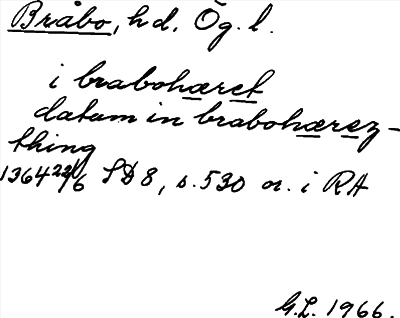 Bråbo, hd. Ög. l.
i brabohæret
datum in brabohærez-
thing
1364 22/6 SD 8, s. 530 or. i RA
G.L. 1966.